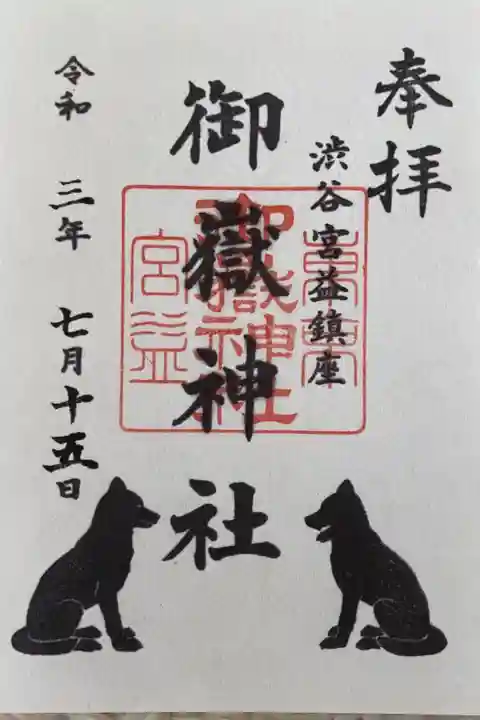 奉拝
渋谷宮益鎮座
御嶽神社
令和三年七月十五日
東京
御嶽神社
宮益